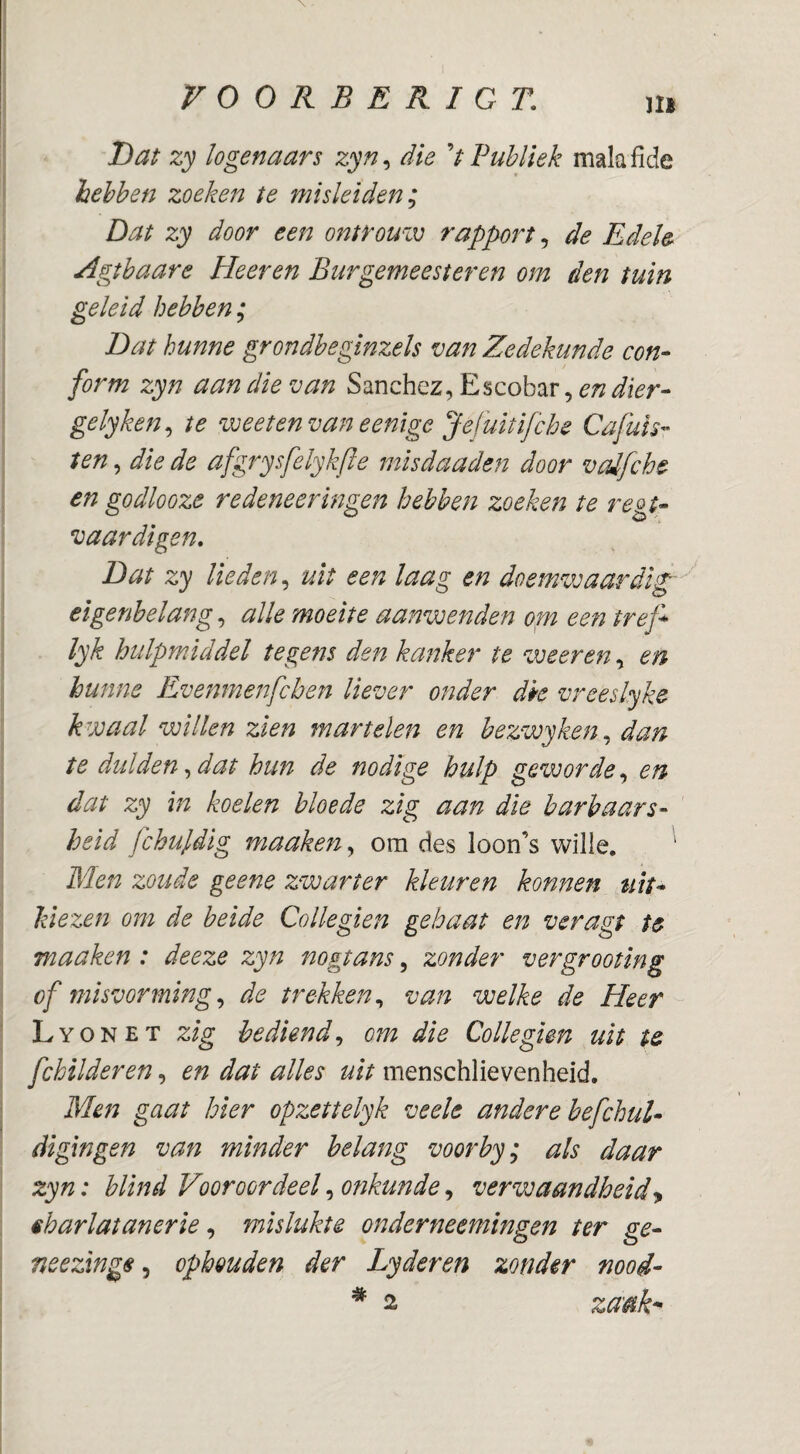 VOORBERIGT. III
Dat zy logenaars zyn, die 't Publiek mala fide
hebben zoeken te misleiden;
Dat zy door een ontrouw rapport, de Edele
Agtbaare Heeren Burgemeesteren om den tuin
geleid hebben;
Dat hunne grondbeginzels van Zedekunde con-
form zyn aan die van Sanchez, Escobar, en dier-
gelyken, te weeten van eenige Jeſuitiſche Caſuis-
ten, die de afgrysſelykſte misdaaden door valſche
en godlooze redeneeringen hebben zoeken te regt-
vaardigen.
Dat zy lieden, uit een laag en doemwaardig
eigenbelang, alle moeite aanwenden om een tref-
lyk hulpmiddel tegens den kanker te weeren, en
hunne Evenmenſchen liever onder die vreeslyke
kwaal willen zien martelen en bezwyken, dan
te dulden, dat hun de nodige hulp geworde, en
dat zy in koelen bloede zig aan die barbaars-
heid ſchuldig maaken, om des loon's wille.
Men zoude geene zwarter kleuren konnen uit-
kiezen om de beide Collegien gehaat en veragt te
maaken: deeze zyn nogtans, zonder vergrooting
of misvorming, de trekken, van welke de Heer
LYONET zig bediend, om die Collegien uit te
ſchilderen, en dat alles uit menschlievenheid.
Men gaat hier opzettelyk veele andere beſchul-
digingen van minder belang voorby; als daar
zyn: blind Vooroordeel, onkunde, verwaandheid,
charlatanerie, mislukte onderneemingen ter ge-
neezinge, ophouden der Lyderen zonder nood-
* 2 zaak-